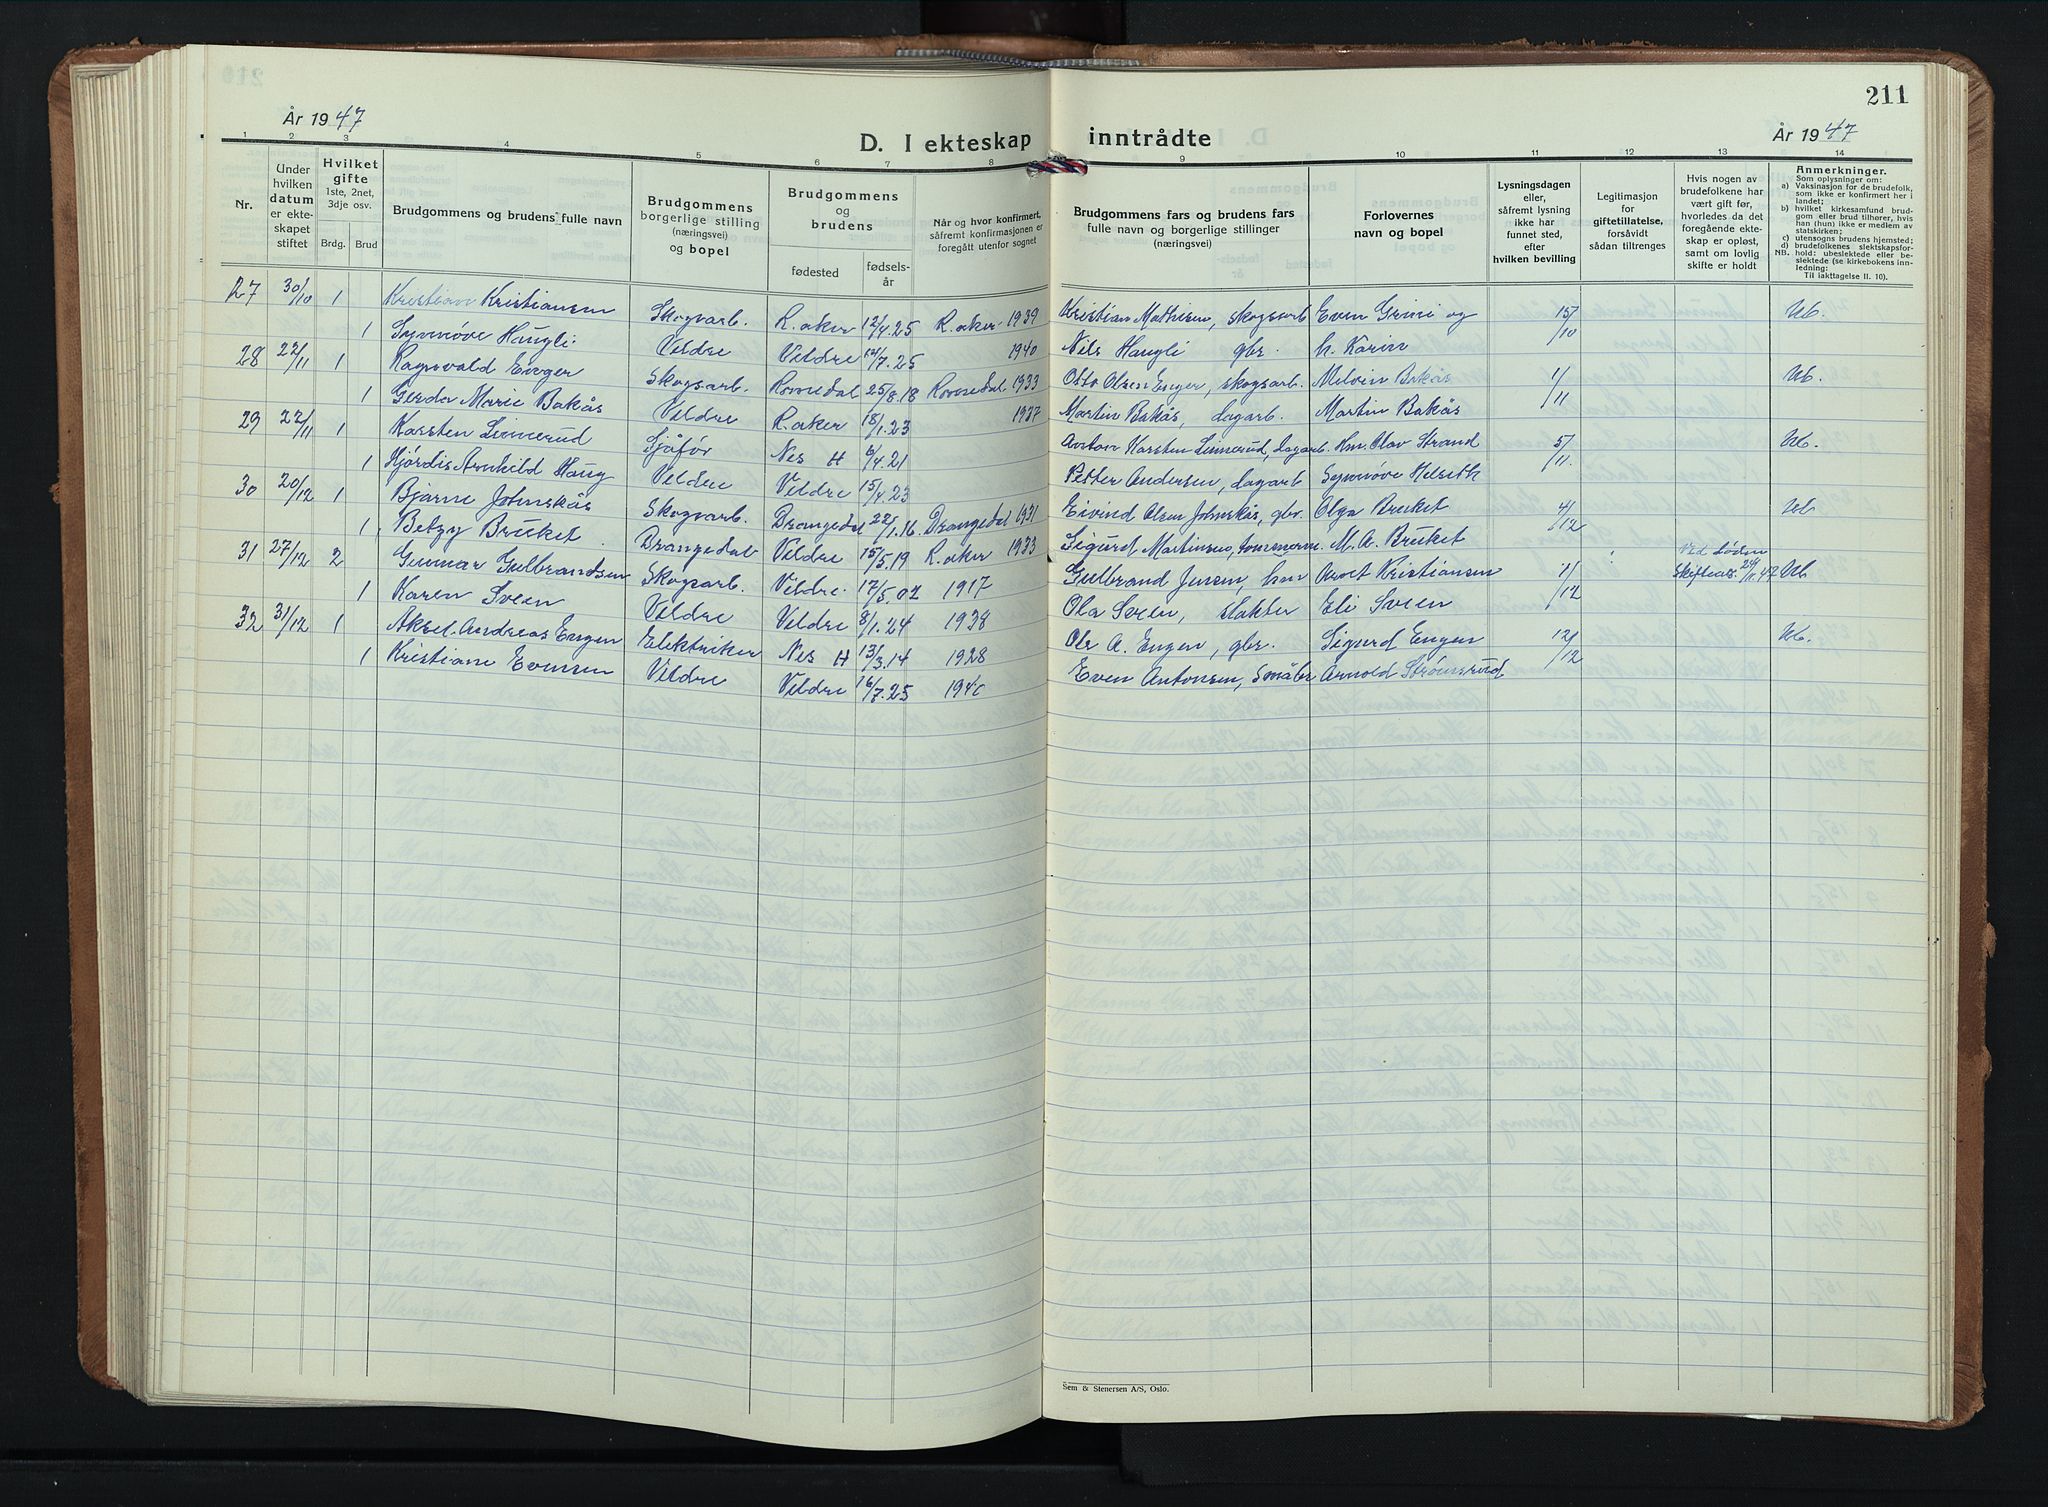 211
År 1947
D. I ekteskap inntrådte
År 1947
1 2 3 4 5 6 7 8 9 10 11 12 13 14
Nr.
Under hvilken datum er ekteskapet stiftet
Hvilket gifte 1ste, 2net, 3dje osv.
Brdg. Brud
Brudgommens og brudens fulle navn
Brudgommens borgerlige stilling (næringsvei) og bopel
Brudgommens og brudens
fødested fødselsår
Når og hvor konfirmert, såfremt konfirmasjonen er foregått utenfor sognet
Brudgommens fars og brudens fars fulle navn og borgerlige stillinger (næringsvei)
Forlovernes navn og bopel
Lysningsdagen eller, såfremt lysning ikke har funnet sted, efter hvilken bevilling
Legitimasjon for giftetillatelse, forsåvidt sådan tiltrenges
Hvis nogen av brudefolkene har vært gift før, hvorledes da det foregående ekteskap er opløst, samt om lovlig skifte er holdt
Anmerkninger.
Som oplysninger om:
a) Vaksinasjon for de brudefolk, som ikke er konfirmert her i landet;
b) hvilket kirkesamfund brudgom eller brud tilhører, hvis han (hun) ikke er medlem av statskirken;
c) utensogns brudens hjemsted;
d) brudefolkenes slektskapsforhold: ubeslektede eller beslektede (se kirkebokens innledning:
NB. Til iakttagelse II. 10).
27 30/10 1 Kristian Kristiansen Skogsarb. R.aker 12/4.25 R.aker 1939 Kristian Mathisen, skogsarb Even Grini og 15/10 Ub.
1 Synnøve Haugli Veldre Veldre 12/7.25 1940 Nils Haugli gbr. h. Karin
28 22/11 1 Ragnvald Enger Skogsarb. Romedal 25/8.18 Romedal 1933 Otto Olsen Enger, skogsarb. Melvin Bakås 1/11 Ub.
1 Gerda Marie Bakås Veldre R.aker 18/1.23 1937 Martin Bakås, dagarb. Martin Bakås
29 22/11 1 Karsten Linnerud Sjåfør Nes H 6/4.21 Anton Karsten Linnerud, dagarb. Hm. Olav Strand 5/11. Ub.
1 Hjördis Arnhild Haug Veldre Veldre 15/4.23 Petter Andersen, dagarb Synnøve Helseth
30 20/12 1 Bjarne Johnskås Skogsarb. Drangedal 22/1.16 Drangedal 1931 Eivind Olsen Johnskås, gbr. Olga Bruket 4/12 Ub
1 Betzy Bruket Drangedal Veldre 15/5.19 R.aker 1933 Sigurd Martinsen, tømmerm. M. A. Bruket
31 27/12 2 Gunnar Gulbrandsen Skogsarb. Veldre 17/5.02 1917 Gulbrand Jensen, hm Arnet Kristiansen 1/12 Ved døden Skifteatt. 29/11.47 Ub
1 Karen Sveen Veldre Veldre 8/1.24 1938 Ola Sveen, slakter Eli Sveen
32 31/12 1 Aksel Andreas Engen Elektriker Nes H 13/3.14 1928 Ole A. Engen, gbr. Sigurd Engen 12/12 Ub.
1 Kristiane Evensen Veldre Veldre 16/7.25 1940 Even Antonsen, Småbr Arnold Strømsrud
Sem & Stenersen A/S, Oslo.